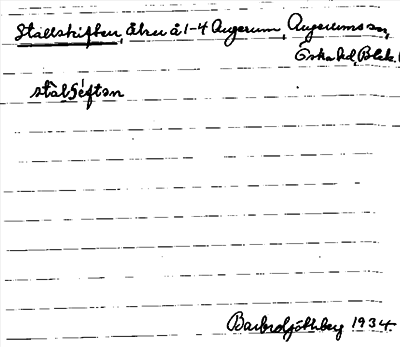 Stallskiften, åkrar å 1-4 Augerum, Augerums sn,
Östra hd, Blek.
stàlʃéftən
Barbro Götlberg 1934